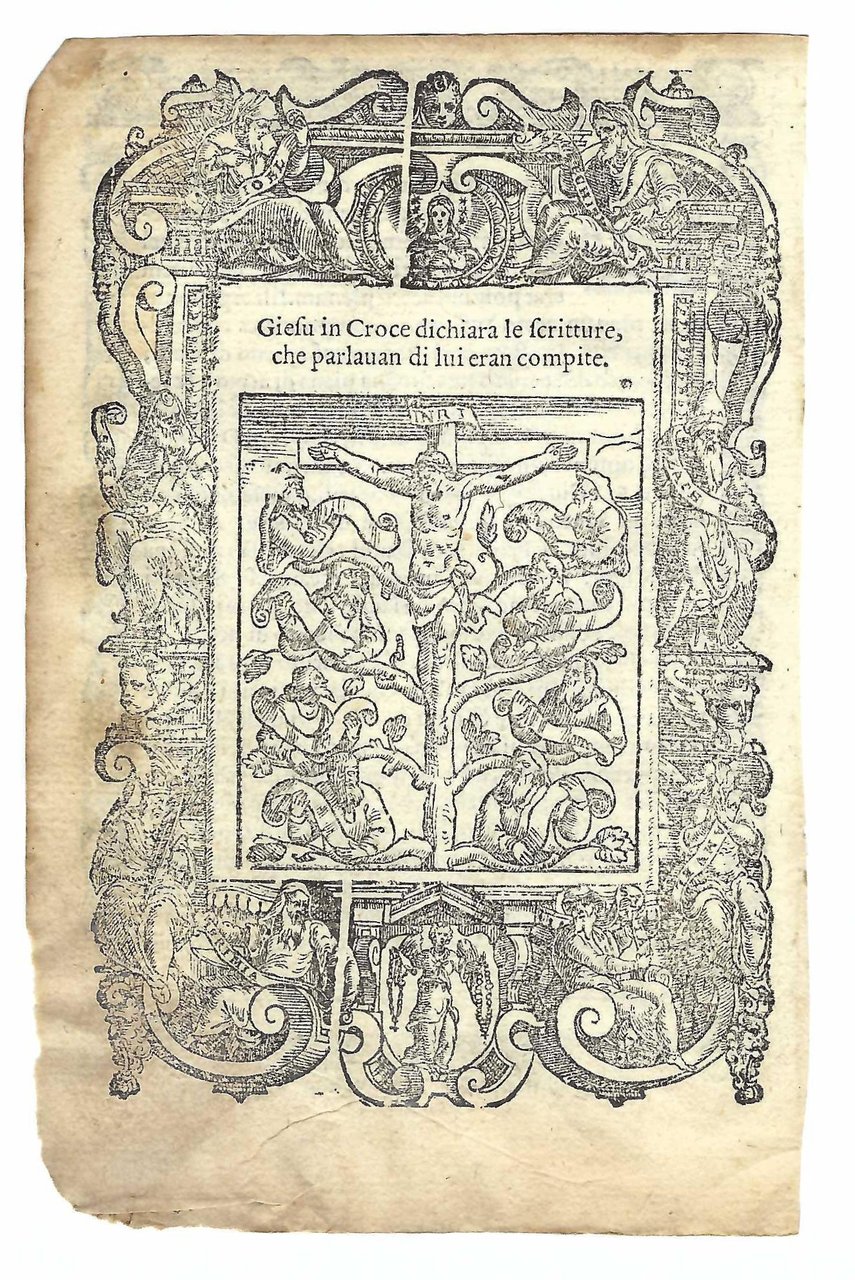 Gieſu in Croce dichiara le ſcritture,
che parlauan di lui eran compite.
INRI